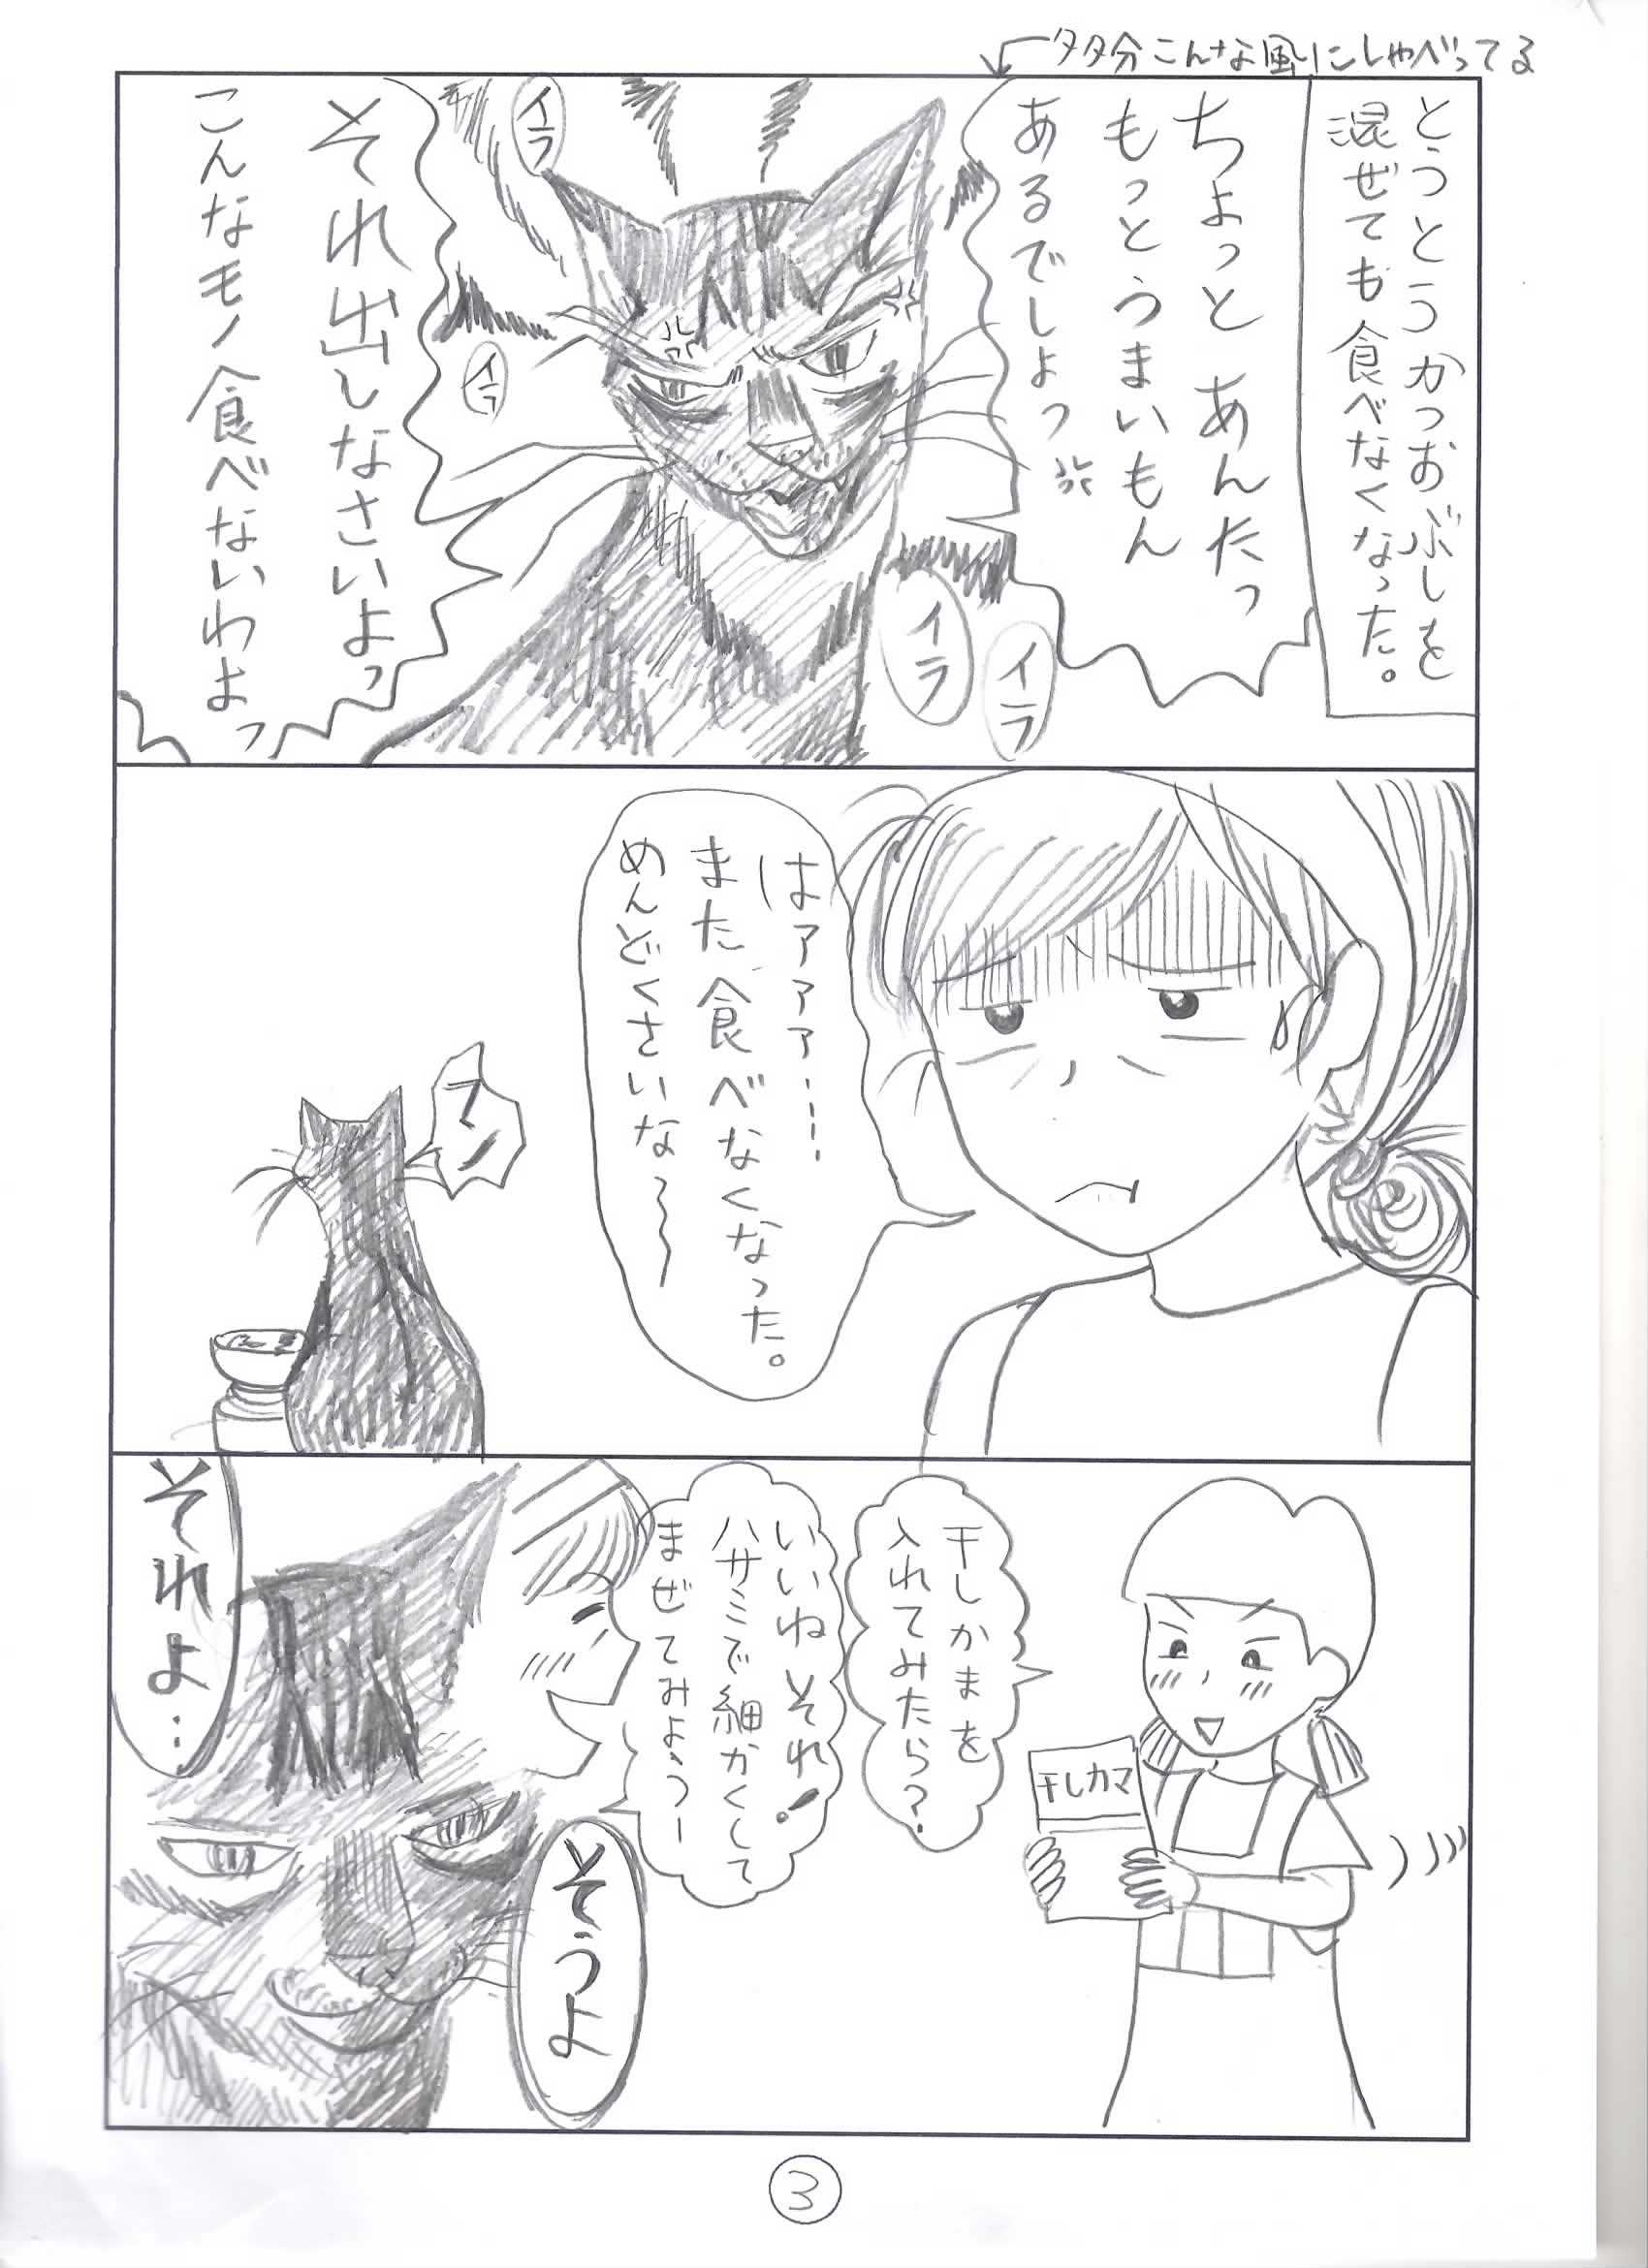 多分こんな風にしゃべってる
とうとうかつおぶしを
混ぜても食べなくなった。
ちょっとあんたっ
もっとうまいもん
あるでしょっ
イラ
イラ
イラ
イラ
それ出しなさいよっ
こんなモノ食べないわよっ
はァァァ……
また食べなくなった。
めんどくさいな〜〜
フン
干しかまを
入れてみたら?
干しカマ
いいねそれ!
ハサミで細かくして
まぜてみようー
そうよ
それよ…
3